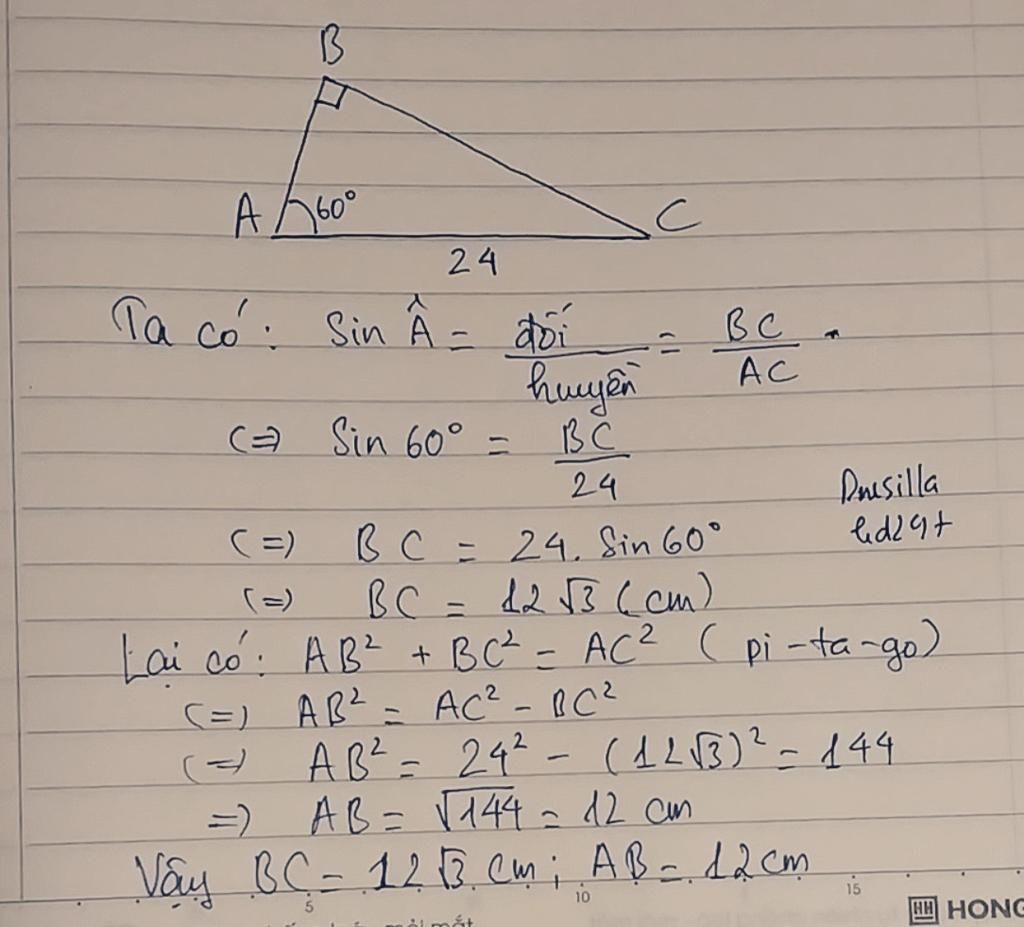 B
A 60° C
24
Ta có: Sin Â = đối/huyền = BC/AC
(=) Sin 60° = BC/24
(=) BC = 24. Sin 60°
(=) BC = 12√3 (cm)
Lại có: AB² + BC² = AC² (pi-ta-go)
(=) AB² = AC² - BC²
(=) AB² = 24² - (12√3)² = 144
=) AB = √144 = 12 cm
Vậy BC = 12√3 cm; AB = 12cm
5 10 15
HH HONG